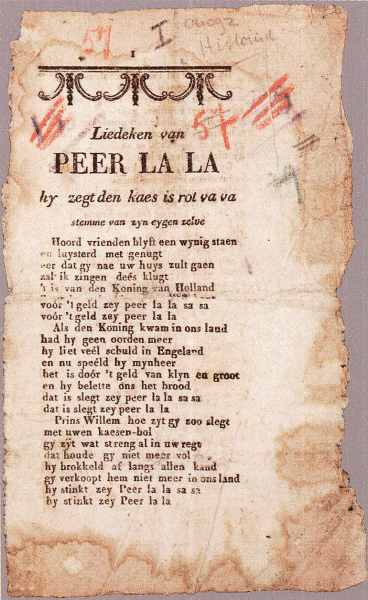 57
I
Historisch
1
Liedeken van
57
PEER LA LA
hy zegt den kaes is rot va va
stemme van zyn eygen zelve
Hoord vrienden blyft een wynig staen
en luysterd met genugt
eer dat gy nae uw huys zult gaen
zal ik zingen deés klugt
't is van den Koning van Holland
voór 't geld zey peer la la sa sa
voór 't geld zey peer la la
Als den Koning kwam in ons land
had hy geen oorden meer
hy liet veél schuld in Engeland
en nu speéld hy mynheer
het is dóór 't geld van klyn en groot
en hy belette óns het brood
dat is slegt zey peer la la sa sa
dat is slegt zey peer la la
Prins Willem hoe zyt gy zoo slegt
met uwen kaesen-bol
gy zyt wat streng al in uw regt
dat houde gy niet meer vol
hy brokkeld af langs allen kand
gy verkoopt hem niet meer in ons land
hy stinkt zey Peer la la sa sa
hy stinkt zey Peer la la